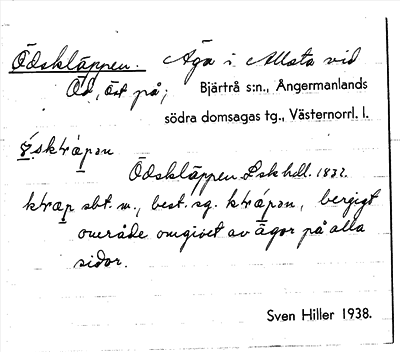 Ödskläppen. Äga i Allsta vid
Öd, öst på;
Bjärtrå s:n., Ångermanlands
södra domsagas tg., Västernorrl. l.
Ödskläppen Lskhdl. 1832.
sbt. m., best. sg. bergigt
område omgivet av ägor på alla
sidor.
Sven Hiller 1938.